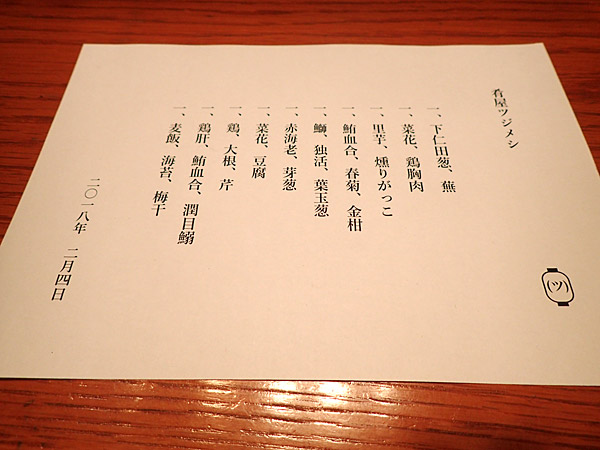 肴屋ツジメシ
一、下仁田葱、熊
一、菜花、鶏胸肉
一、里芋、燻りがっこ
一、鮪血合、春菊、金柑
一、鰤、独活、葉玉葱
一、赤海老、芽葱
一、菜花、豆腐
一、鶏、大根、芹
一、鶏肝、鮪血合、潤目鰯
一、麦飯、海苔、梅干
二〇一八年 二月四日
(ツ)